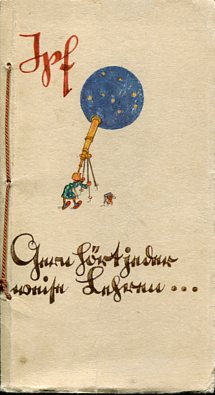 Ipf
Gern hört jeder
weise Lehren...